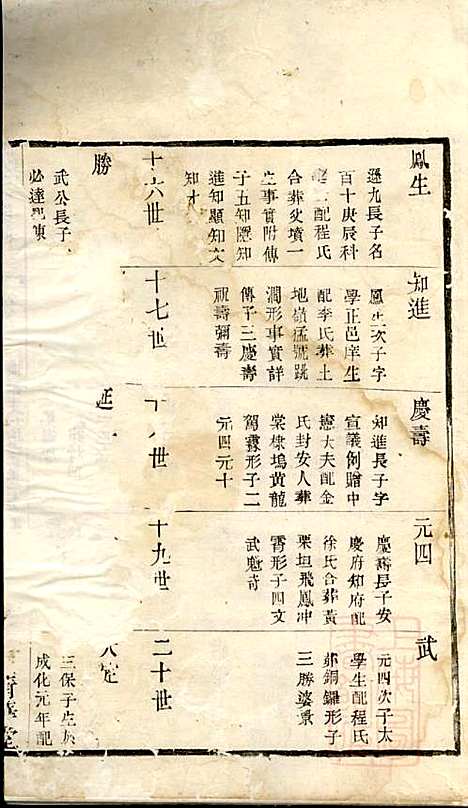 鳳生
遜九長子名
百十庚辰科
配程氏
合葬炭墳一
生事實附傳
子五知隱知
進知顯知文
知才
知進
鳳生次子字
學正邑庠生
配李氏葬土
地嶺猛號跳
澗形事實詳
傳子三慶壽
祖壽彌壽
慶壽
知進長子字
宣義例贈中
憲大夫配金
氏封安人葬
棠棣塢黃龍
駕霧形子二
元四元十
元四
慶壽長子安
慶府知府配
徐氏合葬黃
栗垣飛鳳冲
霄形子四文
武魁奇
武
元四次子太
學生配程氏
葬銅鑼形子
三勝婆秉
十六世
十七世
十八世
十九世
二十世
勝
武公長子
必達配陳
延一
三保子生於
成化元年配
堂